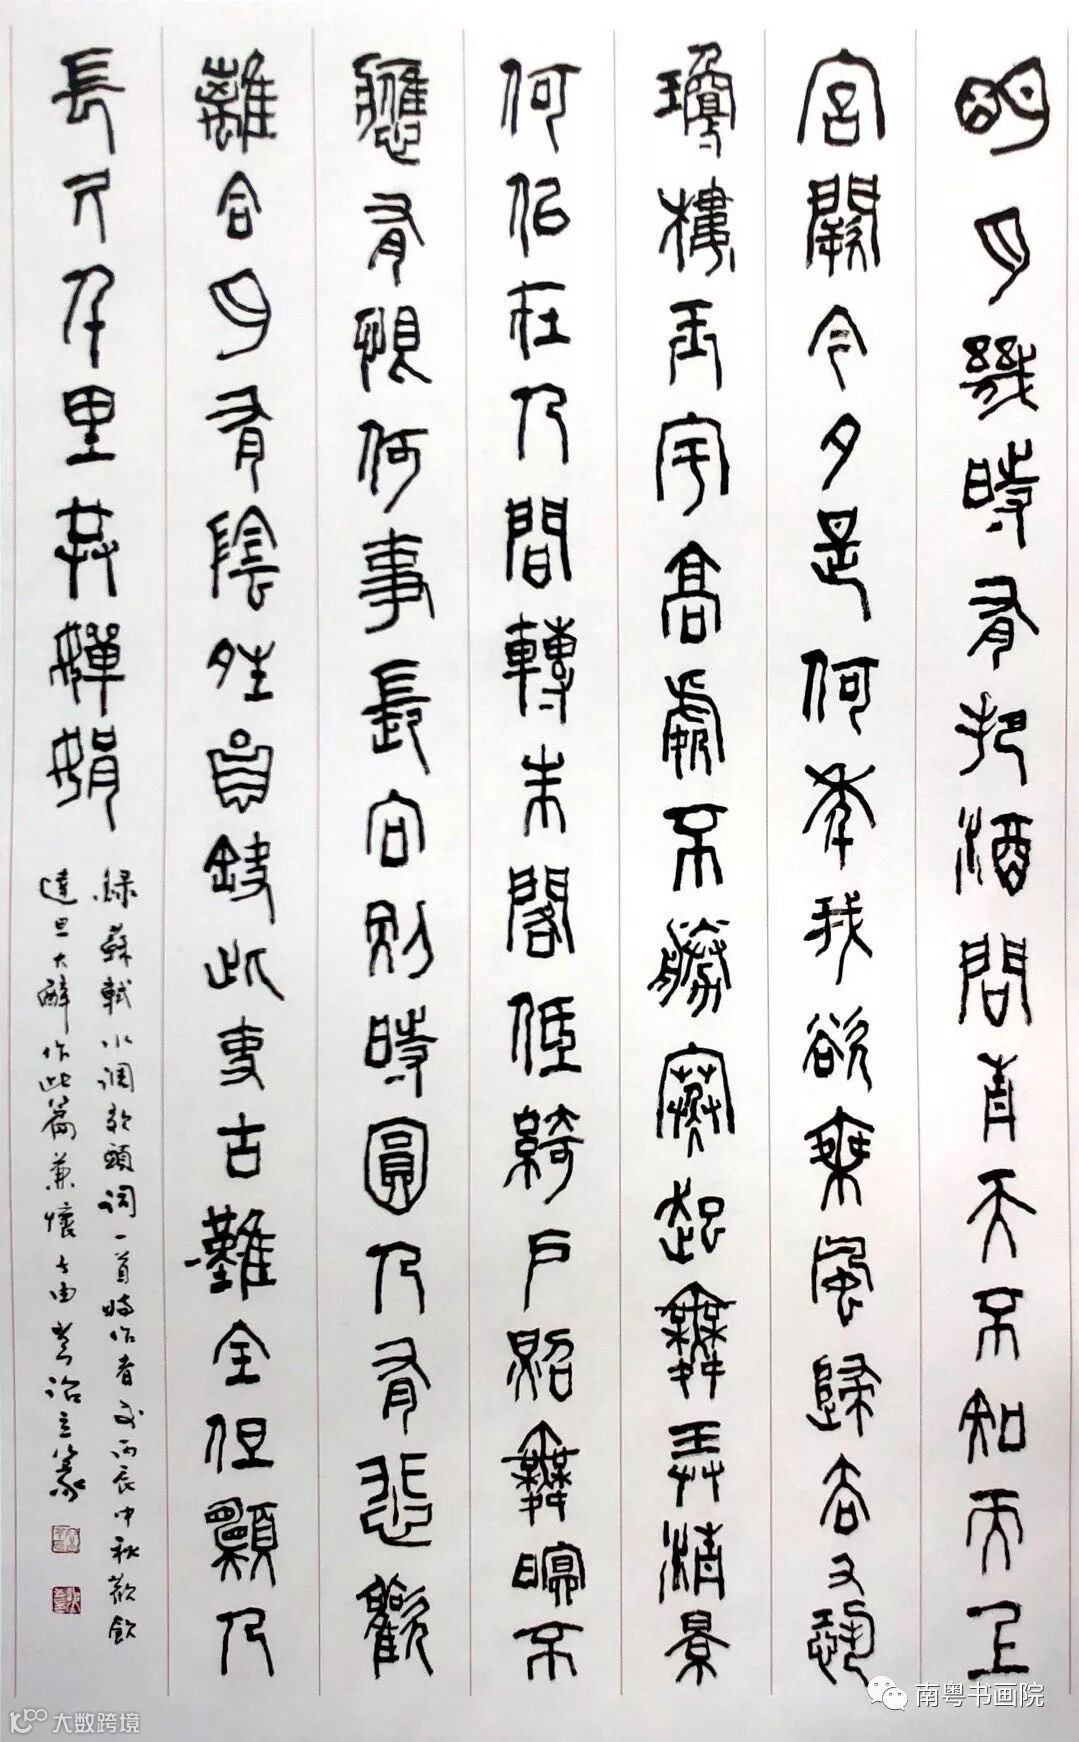 明月幾時有把酒問青天不知天上
宮闕今夕是何年我欲乘風歸去又恐
瓊樓玉宇高處不勝寒起舞弄清景
何似在人間轉朱閣低綺戶照無眠不
應有恨何事長向別時圓人有悲歡
離合月有陰晴圓缺此事古難全但願人
長久千里共嬋娟
錄蘇軾水調歌頭詞一首時作者於丙辰中秋歡飲
達旦大醉作此篇兼懷子由
南粤书画院
大数跨境